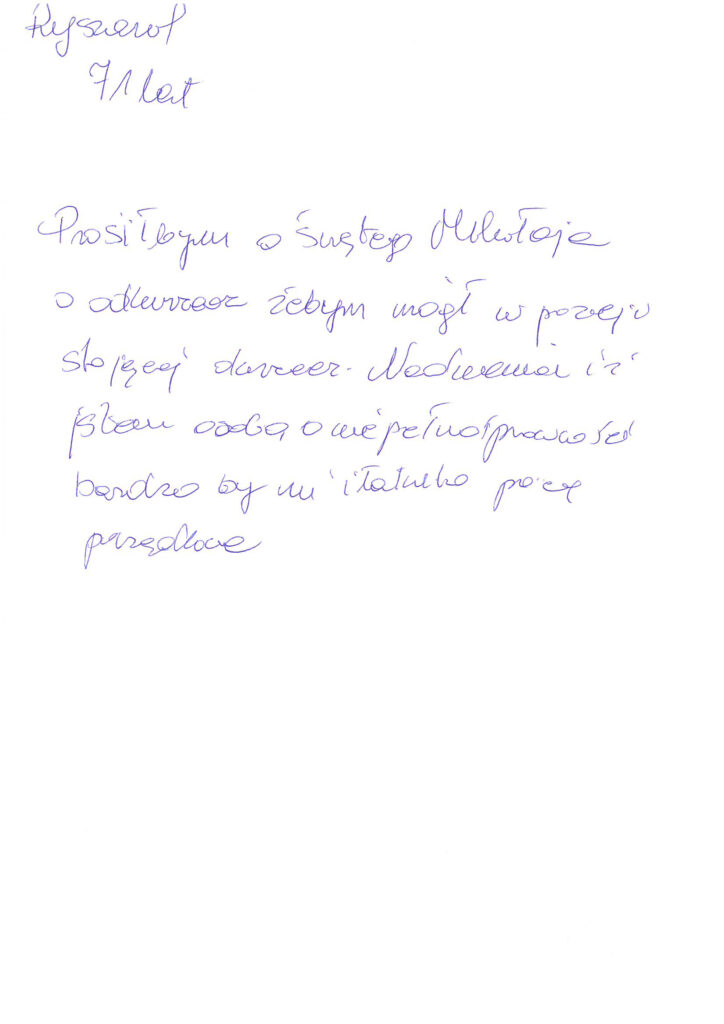 Ryszard
71 lat
Prosiłbym o Świętego Mikołaja
o odkurzacz żebym mógł w pozycji
stojącej Nadmieniam iż
jestem osobą o niepełnosprawności
bardzo by mi ułatwiło pracę
porządkowe